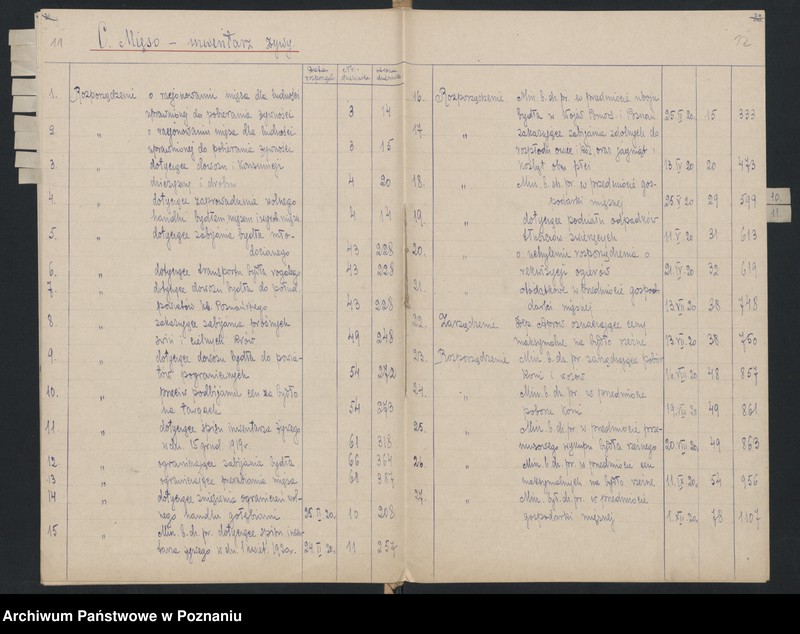 11
C. Mięso - inwentarz żywy.
Data rozporząd. Nr. dziennika strona dziennika
1. Rozporządzenie o racjonowaniu mięsa dla ludności
uprawnionej do pobierania żywności 3 14
2. " o racjonowaniu mięsa dla ludności
uprawnionej do pobierania żywności 3 15
3. " dotyczące dowozu i konsumcji
dziczyzny i drobiu 4 20
4. " dotyczące zaprowadzenia wolnego
handlu bydłem mięsem i 4 14
5. " dotyczące zabijania bydła mło-
docianego 43 228
6. " dotyczące transportu bydła rogatego 43 228
7. " dotyczące dowozu bydła do połud.
powiatów Ks. Poznańskiego 43 228
8. " zakazujące zabijania prośnych
świń i cielnych krów 49 248
9. " dotyczące dowozu bydła do powia-
tów pogranicznych 54 272
10. " przeciw podbijaniu cen za bydło
na targach 54 273
11. " dotyczące spisu inwentarza żywego
w dn. 15 grud. 1919 r. 61 318
12. " ograniczające zabijania bydła 66 364
13 " ograniczające przerabiania mięsa 69 387
14 " dotyczące zniesienia ograniczeń wol-
nego handlu gołębiami 25. II. 20. 10 208
15 " Min. b. dz. pr. dotyczące spisu inwen-
tarza żywego w dn. 1 kwiet. 1920 r. 24. II. 20. 11 257
12
16. Rozporządzenie Min. b. dz. pr. w przedmiocie uboju
bydła w Wojew. Pomor. i Poznań. 25 II 20. 15 333
17. " zakazujące zabijania zdolnych do
rozpłodu owiec i kóz oraz jagniąt i
koźląt obu płci 13. IV 20 20 473
18. " Min. b. dz. pr. w przedmiocie gos-
podarki mięsnej 25 V 20 29 599
19. " dotyczące podziału odpadków
tłuszczów zwierzęcych 11 V 20 31 613
20. " o uchyleniu rozporządzenia o
rekwizycji ogierów 21. IV 20 32 619
21. " dodatkowe w przedmiocie gospo-
darki mięsnej 13 VII 20 38 748
22. Zarządzenie oznaczające ceny
maksymalne na bydło rzeźne 13. VII 20 38 750
23. Rozporządzenie Min. b. dz. pr. zarządzające pobór
koni i wozów VIII 20 48 857
24. " Min. b. dz. pr. w przedmiocie
poboru koni 19. VIII 20 49 861
25. " Min. b. dz. pr. w przedmiocie przy-
musowego wykupu bydła rzeźnego 20. VIII. 20. 49 863
26. " Min. b. dz. pr. w przedmiocie cen
maksymalnych na bydło rzeźne 11. IX 20. 54 956
27. " Min. był. dz. pr. w przedmiocie
gospodarki mięsnej 1. XII 20. 78 1107
10.
11.
Archiwum Państwowe w Poznaniu